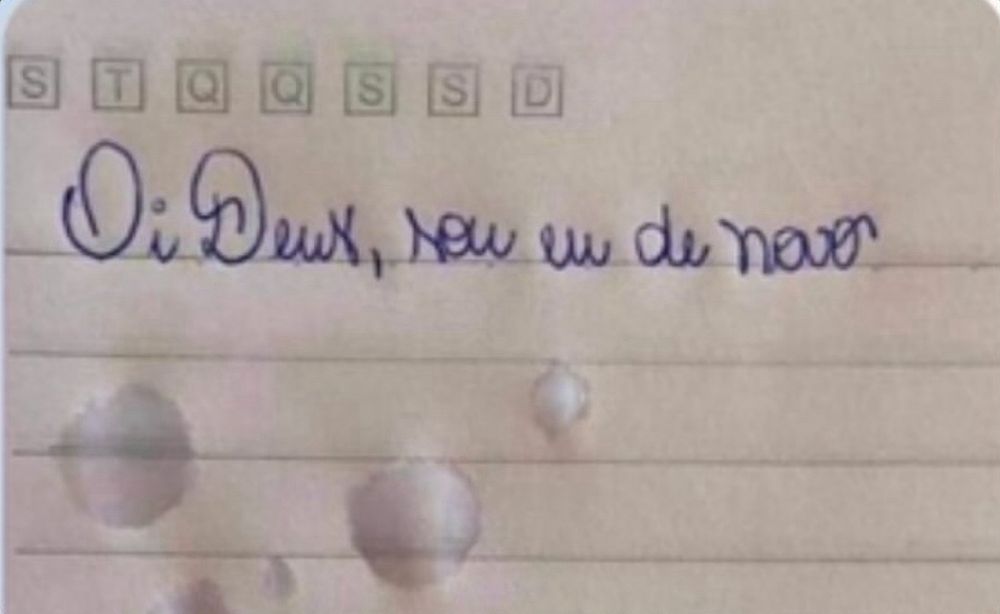 S T Q Q S S D
Oi Deus, sou eu de novo